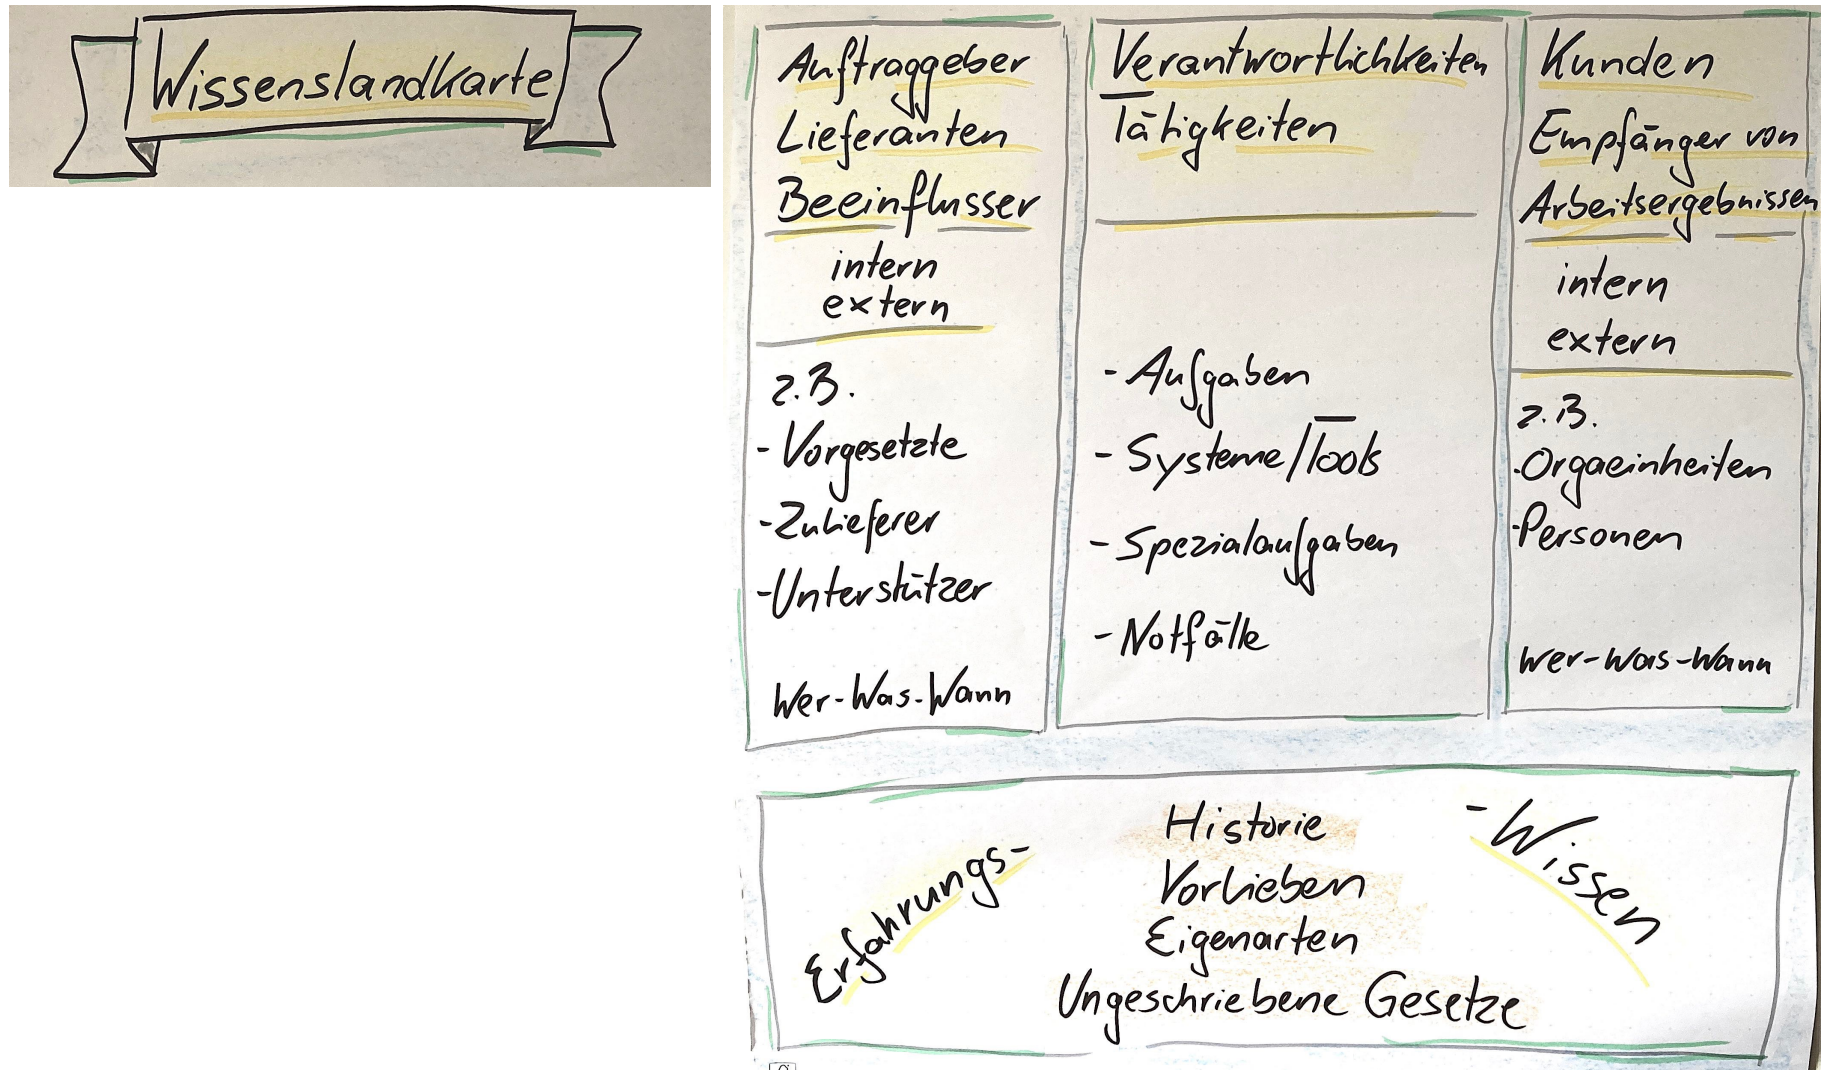 Wissenslandkarte
Auftraggeber
Lieferanten
Beeinflusser
intern
extern
z.B.
- Vorgesetzte
- Zulieferer
- Unterstützer
Wer-Was-Wann
Verantwortlichkeiten
Tätigkeiten
- Aufgaben
- Systeme/Tools
- Spezialaufgaben
- Notfälle
Kunden
Empfänger von
Arbeitsergebnissen
intern
extern
z.B.
- Orgaeinheiten
- Personen
Wer-Was-Wann
Erfahrungs-
Historie
Vorlieben
Eigenarten
Ungeschriebene Gesetze
- Wissen